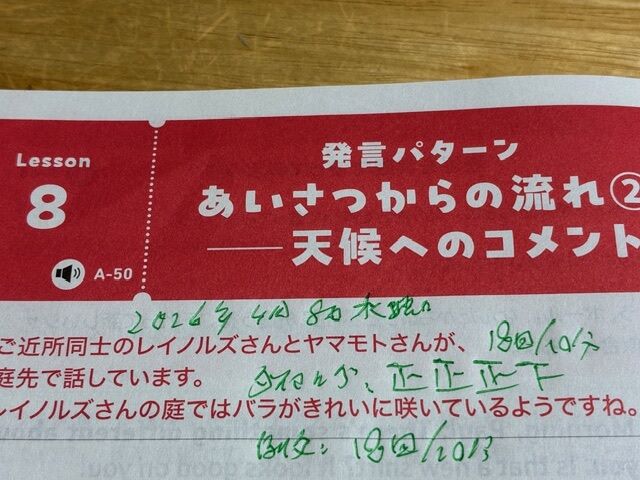 Lesson
8
A-50
発言パターン
あいさつからの流れ②
天候へのコメント
2026年4月8日水曜日
ご近所同士のレイノルズさんとヤマモトさんが、
18回/10分
庭先で話しています。
正正正下
レイノルズさんの庭ではバラがきれいに咲いているようですね。
例文: 18回/10分